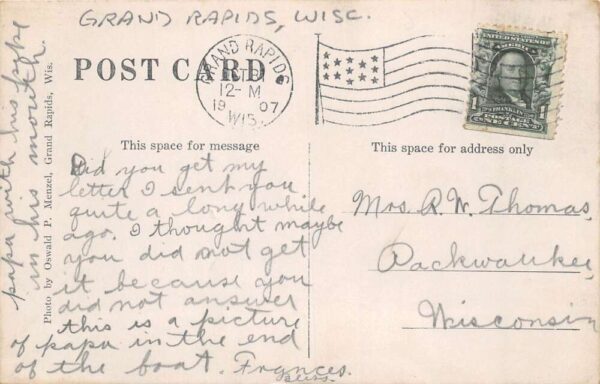 GRAND RAPIDS, WISC.
POST CARD
GRAND RAPIDS
12-M
19 07
WIS.
UNITED STATES OF
AMERICA
FRANKLIN
1 1
POSTAGE
ONE CENT
This space for message
This space for address only
Photo by Oswald P. Menzel, Grand Rapids, Wis.
Did you get my
letter I sent you
quite a long while
ago. I thought maybe
you did not get
it because you
did not answer
this is a picture
of papa in the end
of the boat. Frances.
papa with his pipe
in his mouth.
Mrs. R. W. Thomas,
Packwaukee,
Wisconsin